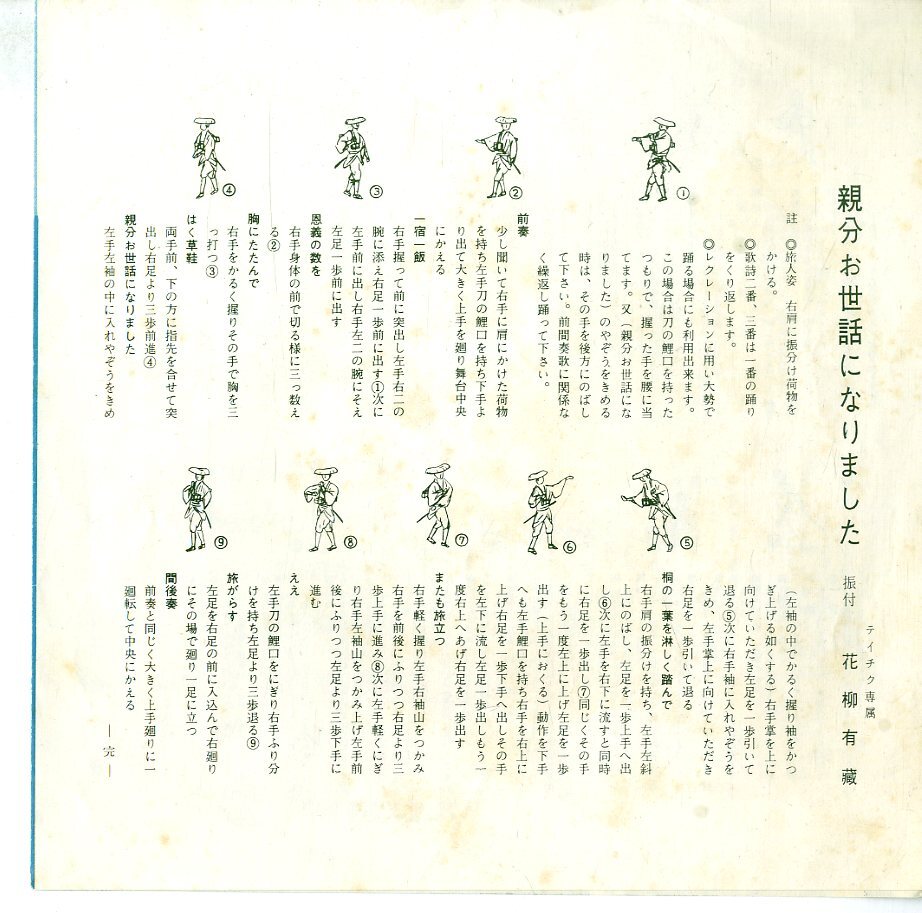 親分お世話になりました
振付 テイチク専属 花柳有藏
註 ◎旅人姿 右肩に振分け荷物を
かける。
◎歌詩二番、三番は一番の踊り
をくり返します。
◎レクレーションに用い大勢で
踊る場合にも利用出来ます。
この場合は刀の鯉口を持った
つもりで、握った手を腰に当
てます。又(親分お世話にな
りました)のやぞうをきめる
時は、その手を後方にのばし
て下さい。前間奏歌に関係な
く繰返し踊って下さい。
前奏
少し聞いて右手に肩にかけた荷物
を持ち左手刀の鯉口を持ち下手よ
り出て大きく上手を廻り舞台中央
にかえる
一宿一飯
右手握って前に突出し左手右二の
腕に添え右足一歩前に出す①次に
左手前に出し右手左二の腕にそえ
左足一歩前に出す
恩義の数を
右手身体の前で切る様に三っ数え
る②
胸にたたんで
右手をかるく握りその手で胸を三
っ打つ③
はく草鞋
両手前、下の方に指先を合せて突
出し右足より三歩前進④
親分お世話になりました
左手左袖の中に入れやぞうをきめ
①
②
③
④
(左袖の中でかるく握り袖をかつ
ぎ上げる如くする)右手掌を上に
向けていただき左足を一歩引いて
退る⑤次に右手袖に入れやぞうを
きめ、左手掌上に向けていただき
右足を一歩引いて退る
桐の一葉を淋しく踏んで
右手肩の振分けを持ち、左手左斜
上にのばし、左足を一歩上手へ出
し⑥次に左手を右下に流すと同時
に右足を一歩出し⑦同じくその手
をもう一度左上に上げ左足を一歩
出す(上手におくる)動作を下手
へも左手鯉口を持ち右手を右上に
上げ右足を一歩下手へ出しその手
を左下に流し左足一歩出しもう一
度右上へあげ右足を一歩出す
またも旅立つ
右手軽く握り左手右袖山をつかみ
右手を前後にふりつつ右足より三
歩上手に進み⑧次に左手軽くにぎ
り右手左袖山をつかみ上げ左手前
後にふりつつ左足より三歩下手に
進む
ええ
左手刀の鯉口をにぎり右手ふり分
けを持ち左足より三歩退る⑨
旅がらす
左足を右足の前に入込んで右廻り
にその場で廻り一足に立つ
間後奏
前奏と同じく大きく上手廻りに一
廻転して中央にかえる
―完―
⑤
⑥
⑦
⑧
⑨